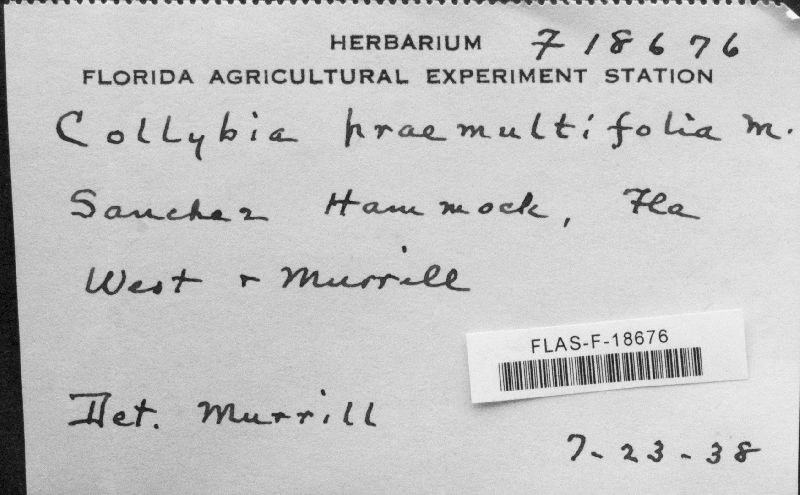 HERBARIUM F 18676
FLORIDA AGRICULTURAL EXPERIMENT STATION
Collybia praemultifolia M.
Sanchez Hammock, Fla
West + Murrill
FLAS-F-18676
Det. Murrill
7-23-38